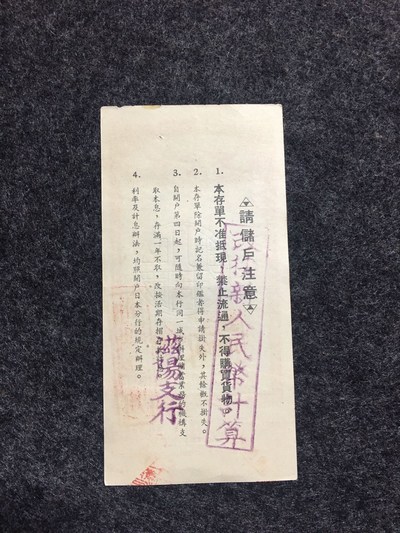 請儲戶注意
新人民幣計算
1. 本存單不准抵現,禁止流通,不得購買貨物。
2. 本存單除開戶時記名兼留印鑑者得申請掛失外,其餘概不掛失。
3. 自開戶第四日起,可隨時向本行同一城業務的機構支
取本息,存滿一年不取,改按活期存
4. 利率及計息辦法,均照開戶日本分行的規定辦理。
支行